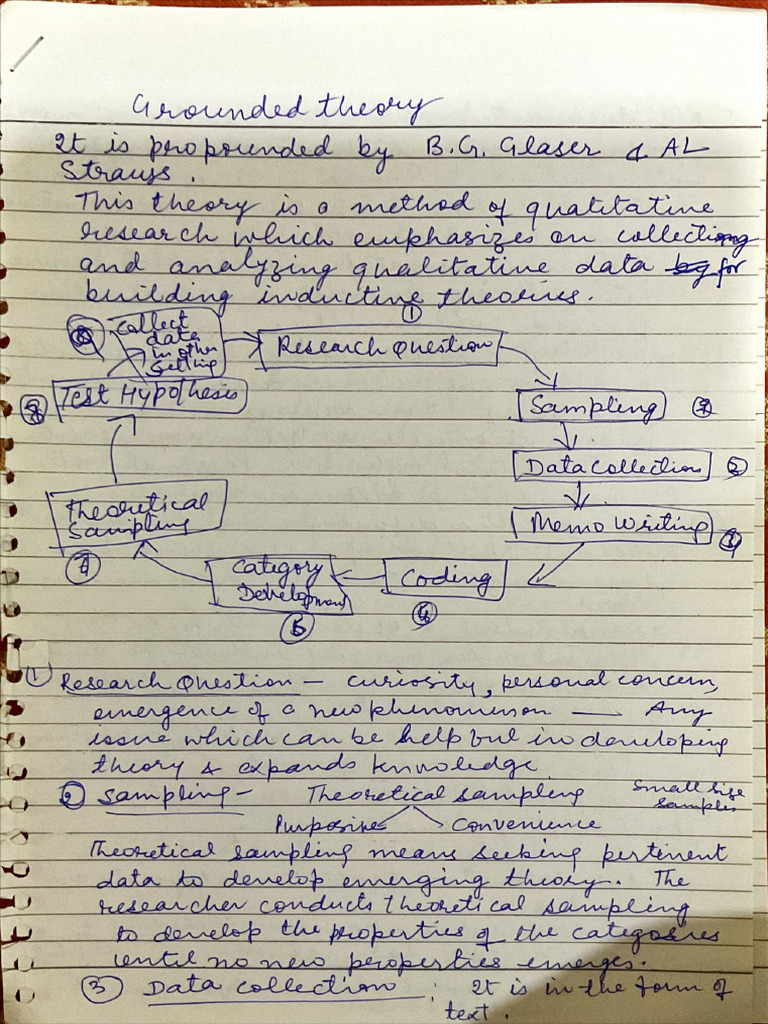 Grounded theory
It is propounded by B.G. Glaser & AL
Strauss.
This theory is a method of qualitative
research which emphasizes on collecting
and analyzing qualitative data for
building inductive theories.
1
Collect
data
in other
setting
Research Question
Test Hypothesis
Sampling
Data Collection
2
Memo Writing
Theoretical
Sampling
Category
Development
Coding
5
1 Research Question — curiosity, personal concern,
emergence of a new phenomenon — Any
issue which can be helpful in developing
theory & expands knowledge
2 Sampling - Theoretical sampling Small size
samples
Purposive Convenience
Theoretical sampling means seeking pertinent
data to develop emerging theory. The
researcher conducts theoretical sampling
to develop the properties of the categories
until no new properties emerges.
3 Data collection : It is in the form of
text.